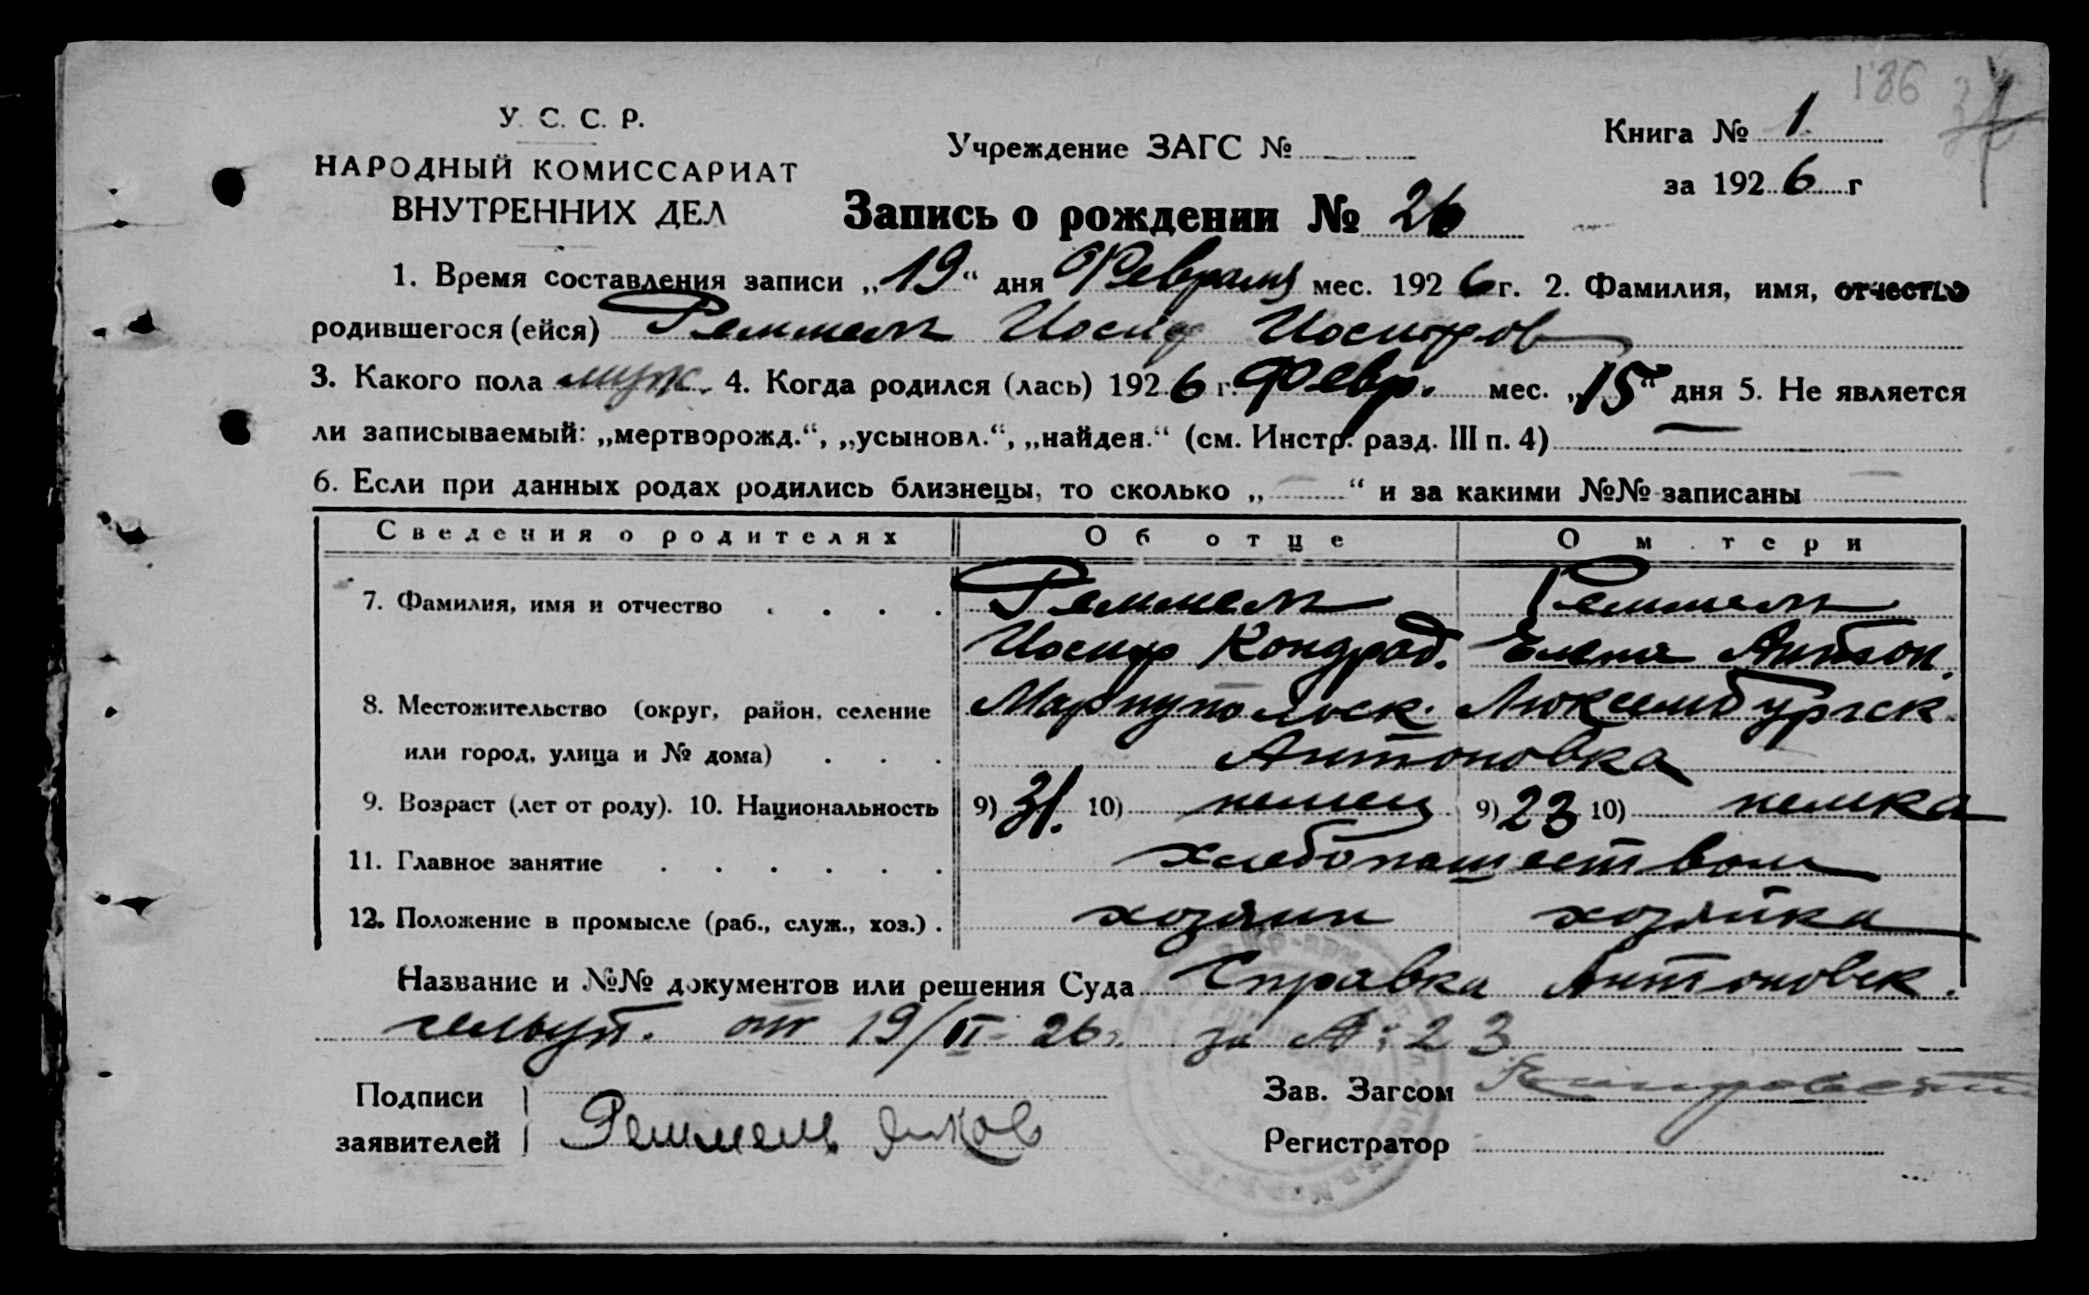 186
У. С. С. Р.
НАРОДНЫЙ КОМИССАРИАТ
ВНУТРЕННИХ ДЕЛ
Учреждение ЗАГС №
Книга № 1
за 1926 г
Запись о рождении № 26
1. Время составления записи „19“ дня Февраля мес. 1926 г. 2. Фамилия, имя, отчество
родившегося (ейся) Реммель Иосиф Иосифов
3. Какого пола муж. 4. Когда родился (лась) 1926 г. Февр. мес. „15“ дня 5. Не является
ли записываемый: „мертворожд.“, „усыновл.“, „найден.“ (см. Инстр. разд. III п. 4) —
6. Если при данных родах родились близнецы, то сколько „ — “ и за какими №№ записаны —
Сведения о родителях Об отце О м тери
7. Фамилия, имя и отчество . . . . Реммель Реммель
Иосиф Кондрад. Елена Антон.
8. Местожительство (округ, район, селение Мариупольск. Люксембургск.
или город, улица и № дома) . . . Антоновка
9. Возраст (лет от роду). 10. Национальность 9) 31. 10) немец 9) 23 10) немка
11. Главное занятие . . . . . . хлебопашеством
12. Положение в промысле (раб., служ., хоз.) . хозяин хозяйка
Название и №№ документов или решения Суда Справка Антоновск.
от 19/II 26 г. за №: 23
Подписи
заявителей Реммель Яков
Зав. Загсом
Регистратор